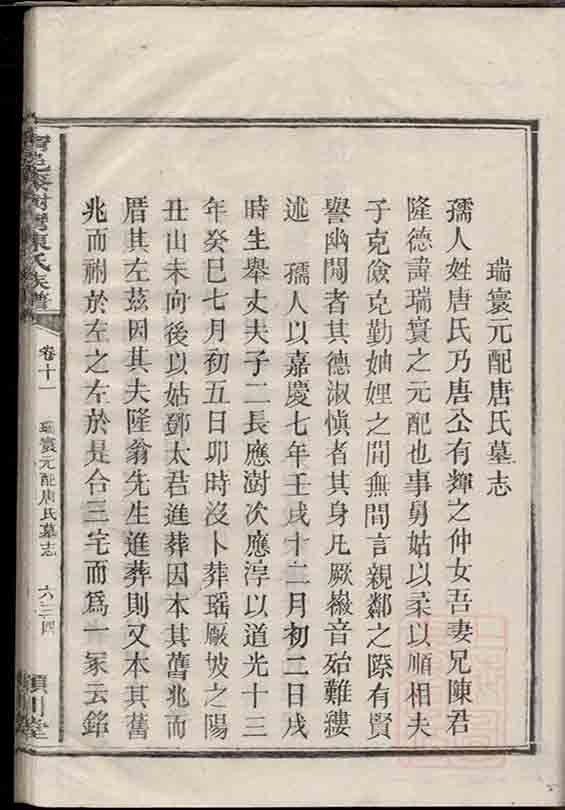 瑞寰元配唐氏墓志
孺人姓唐氏乃唐公有輝之仲女吾妻兄陳君
隆德諱瑞寰之元配也事舅姑以柔以順相夫
子克儉克勤妯娌之間無間言親鄰之際有賢
譽幽閒者其德淑慎者其身凡厥徽音殆難縷
述　孺人以嘉慶七年壬戌十二月初二日戌
時生舉丈夫子二長應澍次應淳以道光十三
年癸巳七月初五日卯時沒卜葬瑶厰坡之陽
丑山未向後以姑鄧太君進葬因本其舊兆而
厝其左茲因其夫隆翁先生進葬則又本其舊
兆而祔於左之左於是合三宅而爲一冢云銘
陳氏族譜
卷十一
瑞寰元配唐氏墓志
六三四
潁川堂